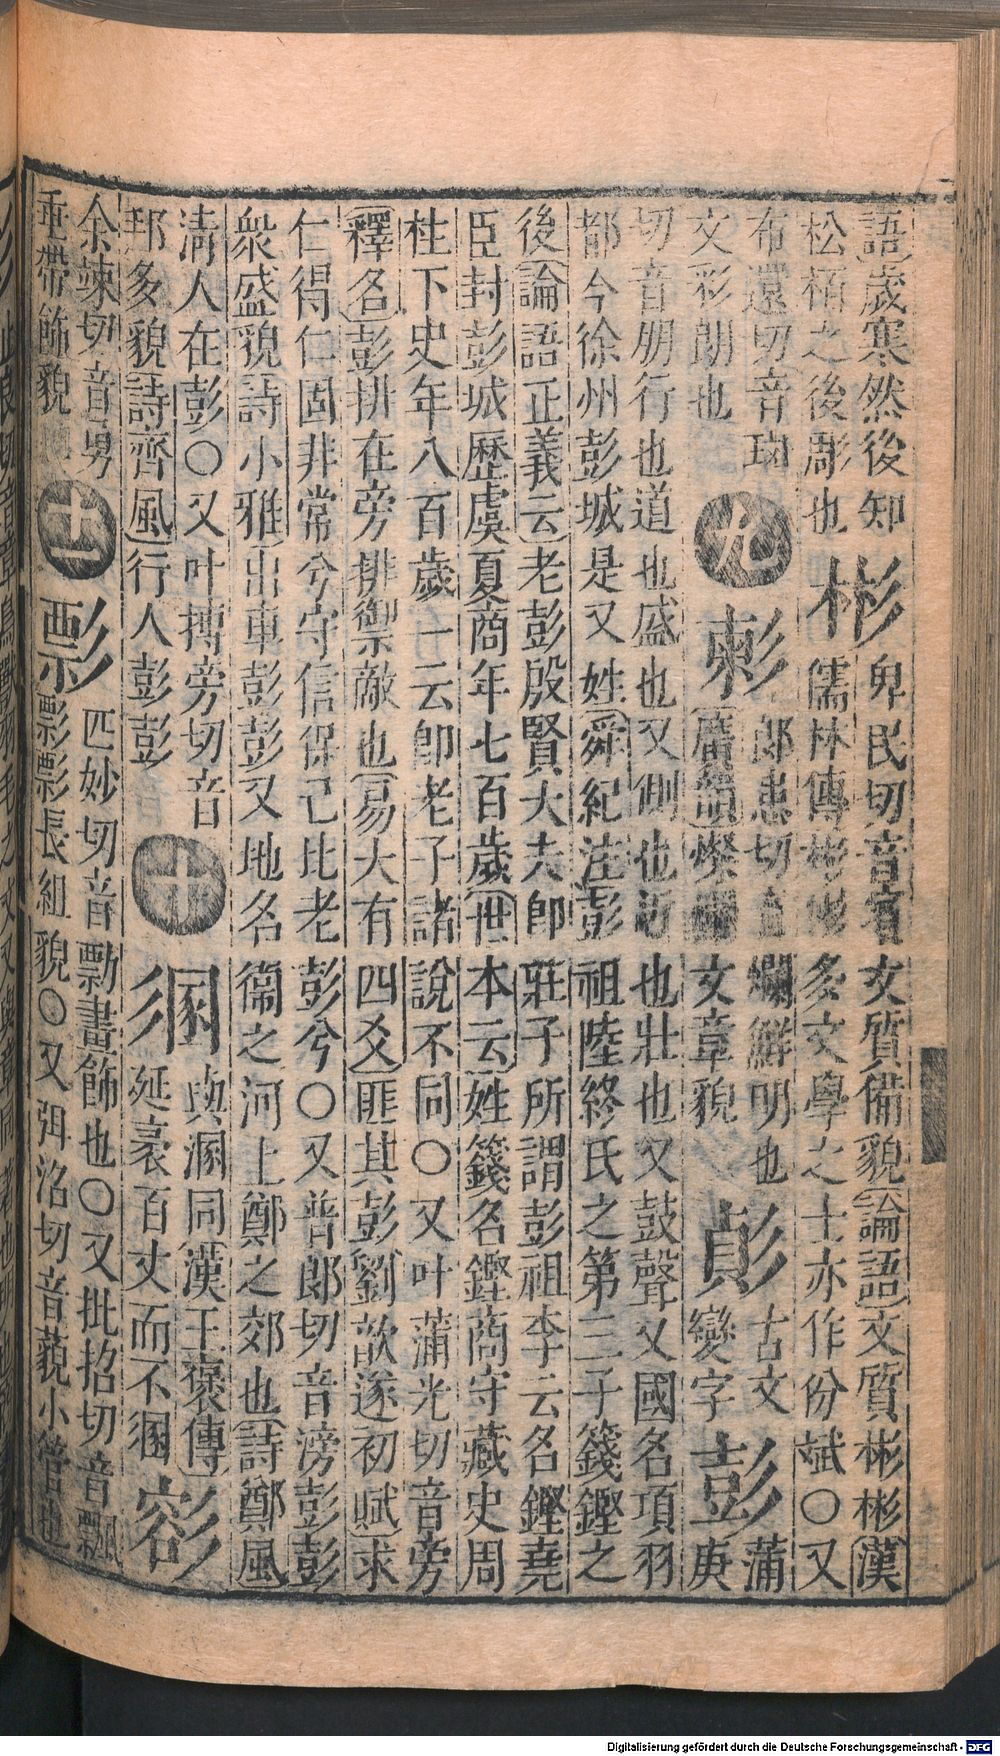 語歲寒然後知
松栢之後彫也
彬
卑民切音賓文質備貌論語文質彬彬漢
儒林傳彬彬多文學之士亦作份斌〇又
布還切音斑
文彩朗也
九
郎患切音爛鮮明也
廣韻燦文章貌
古文
變字
彭
蒲
庚
切音朋行也道也盛也又側也近也壯也又鼓聲又國名項羽
都今徐州彭城是又姓舜紀注彭祖陸終氏之第三子籛鏗之
後論語正義云老彭殷賢大夫卽莊子所謂彭祖李云名鏗堯
臣封彭城歷虞夏商年七百歲世本云姓籛名鏗商守藏史周
柱下史年八百歲一云卽老子諸說不同〇又叶蒲光切音旁
釋名彭排在旁排禦敵也易大有四爻匪其彭劉歆遂初賦求
仁得仁固非常兮守信保己比老彭兮〇又普郎切音滂彭彭
衆盛貌詩小雅出車彭彭又地名衞之河上鄭之郊也詩鄭風
淸人在彭〇又叶搏旁切音
邦多貌詩齊風行人彭彭
十
與溷同漢王褒傳
延袤百丈而不
余竦切音勇
垂帶飾貌
十一
彯
匹妙切音勡畫飾也〇又批招切音飄
彯彯長組貌〇又弭沼切音藐小管也
Digitalisierung gefördert durch die Deutsche Forschungsgemeinschaft - DFG